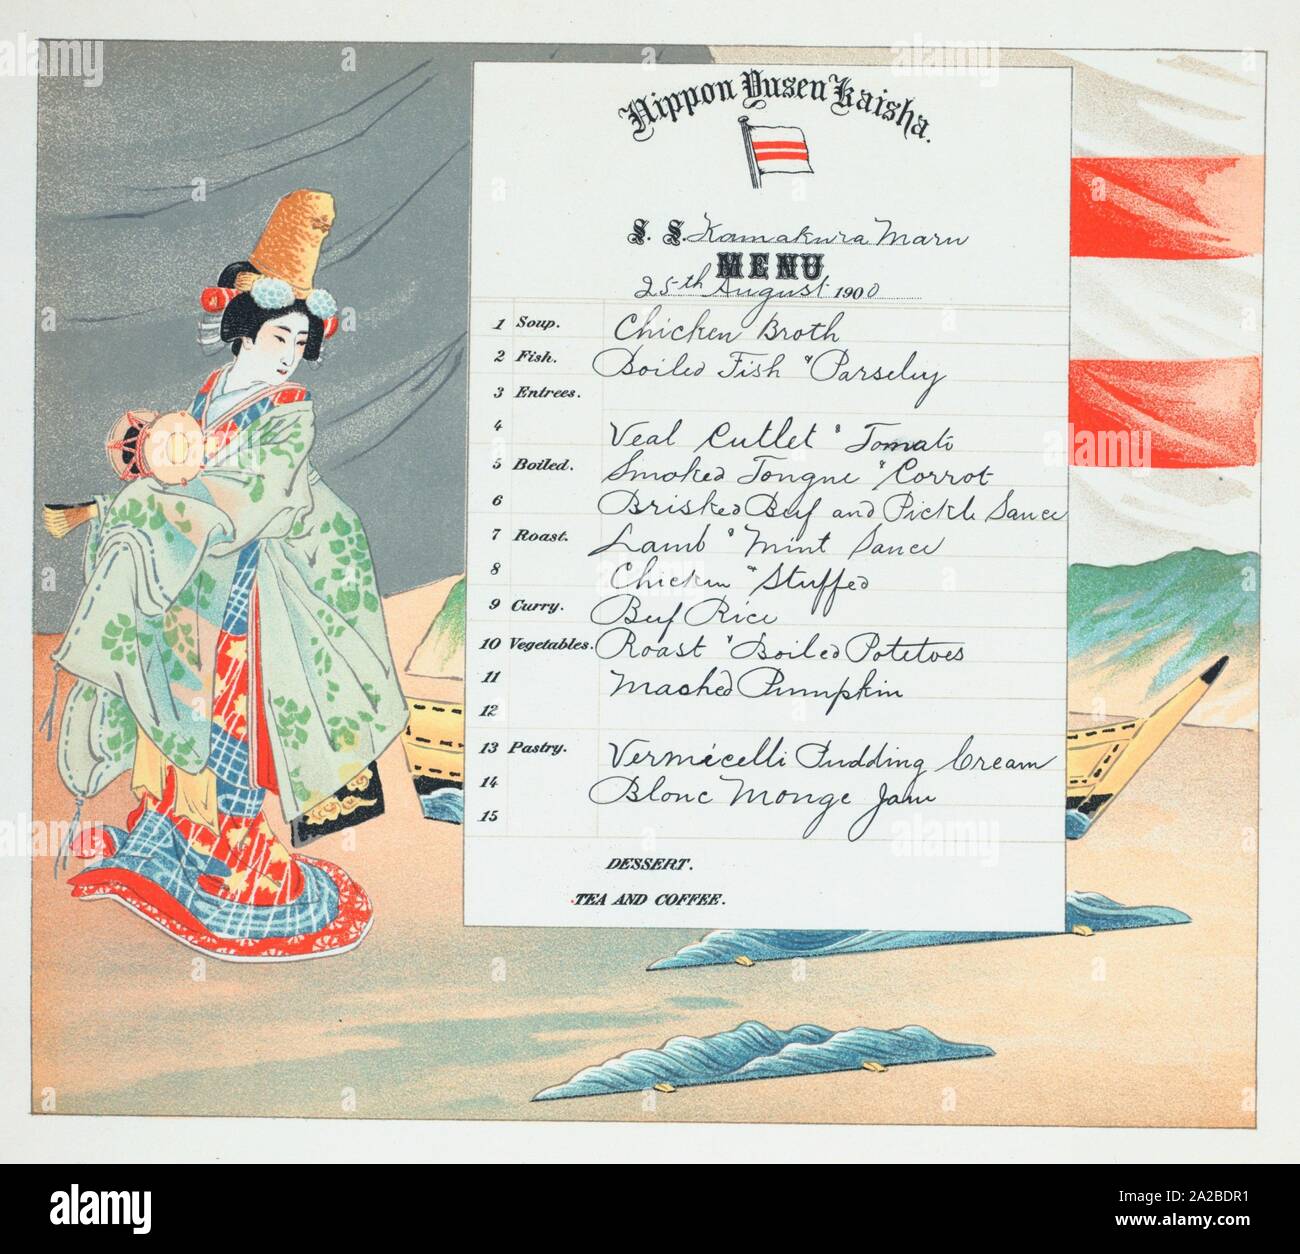 Nippon Yusen Kaisha.
S. S. Kamakura Maru
MENU
25th August 1900
1 Soup. Chicken Broth
2 Fish. Boiled Fish " Parseley
3 Entrees.
4 Veal Cutlet " Tomato
5 Boiled. Smoked Tongue " Corrot
6 Brisked Beef and Pickle Sauce
7 Roast. Lamb " Mint Sauce
8 Chicken " Stuffed
9 Curry. Beef Rice
10 Vegetables. Roast " Boiled Potetoes
11 Mashed Pumpkin
12
13 Pastry. Vermicelli Pudding Cream
14 Blonc Monge Jam
15
DESSERT.
TEA AND COFFEE.
alamy
Image ID: 2A2BDR1
www.alamy.com